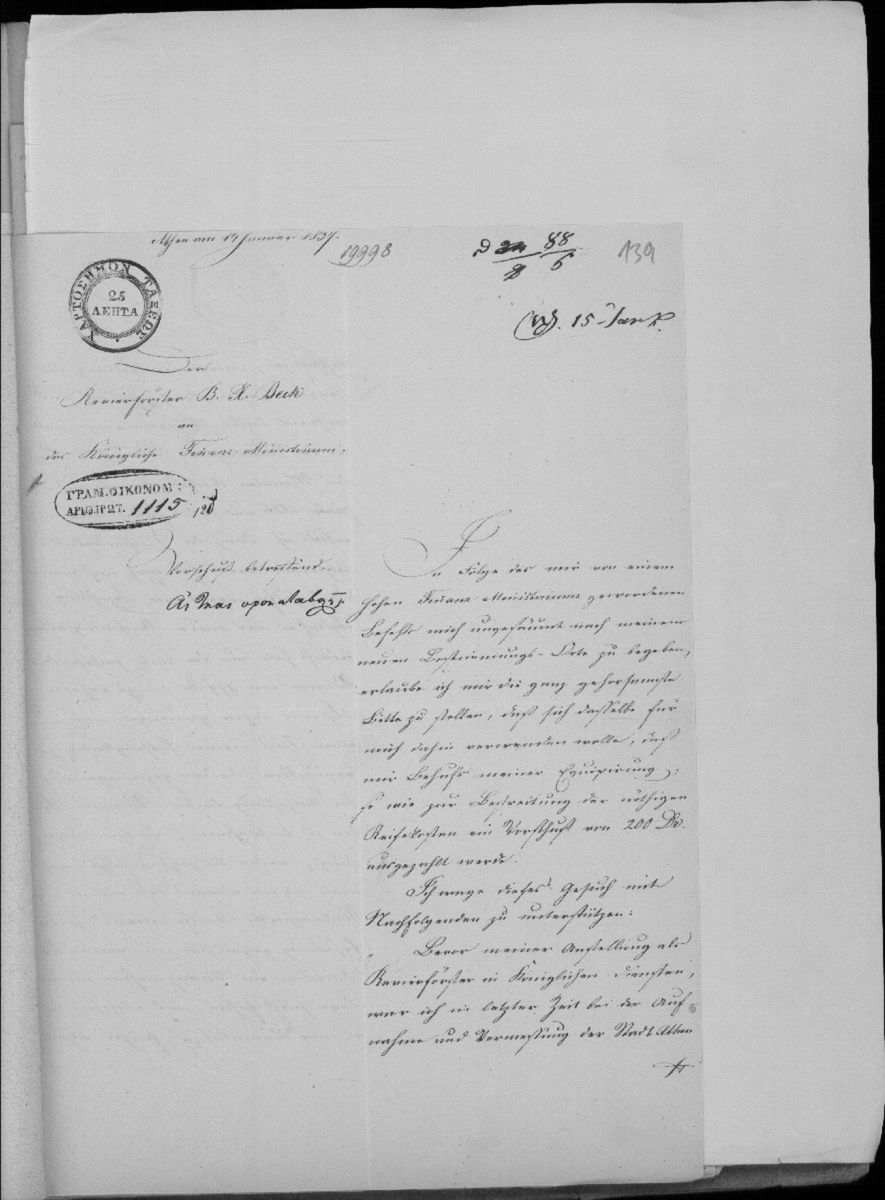 Athen am 14 Januar 1837.
19998
88
6
139
15 Jan
ΧΑΡΤΟΣΗΜΟΝ ΤΑΞΕΩΣ
25
ΛΕΠΤΑ
Der
Revierförster B. X. Beck
an
das Königliche Finanz-Ministerium.
ΓΡΑΜ. ΟΙΚΟΝΟΜ:
ΑΡΙΘ. ΠΡΩΤ. 1115
Vorschuß betreffend.
In Folge des mir von einem
hohen Finanz-Ministerium gewordenen
Befehls mich ungesäumt nach meinem
neuen Bestimmungs-Orte zu begeben,
erlaube ich mir die ganz gehorsamste
Bitte zu stellen, daß sich dasselbe für
mich dahin verwenden wolle, daß
mir Behufs meiner Equipirung,
so wie zur Bestreitung der nöthigen
Reisekosten ein Vorschuß von 200 Dr.
ausgezahlt werde.
Ich wage dieses Gesuch mit
Nachfolgenden zu unterstützen:
Bevor meiner Anstellung als
Revierförster in Königlichen Diensten,
war ich in letzter Zeit bei der Auf-
nahme und Vermessung der Stadt Athen